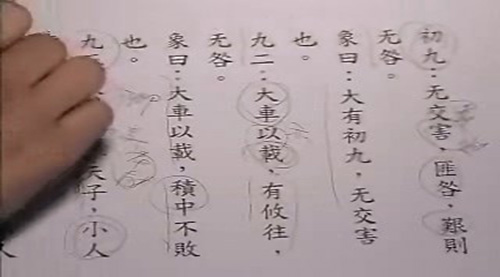 初九：无交害，匪咎，艱則
无咎。
象曰：大有初九，无交害
也。
九二：大車以載，有攸往，
无咎。
象曰：大車以載，積中不敗
也。
九
天子，小人
人